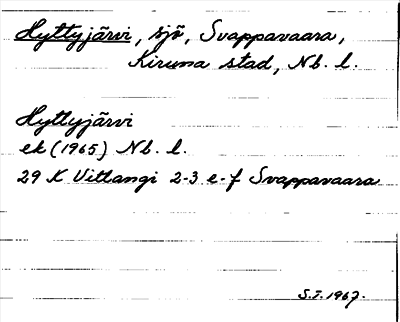 Hyttyjärvi, sjö, Svappavaara,
Kiruna stad, Nb. l.
Hyttyjärvi
ek (1965) Nb. l.
29 K Vittangi 2-3 e-f Svappavaara
S.I. 1967.